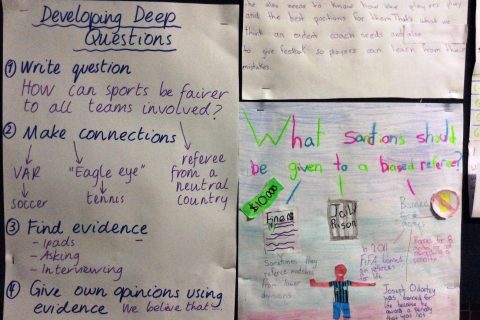 Developing Deep
Questions
1 Write question
HOW can sports be fairer
to all teams involved?
2 Make connections
VAR "Eagle eye" referee
from a
neutral
country
soccer tennis
3 Find evidence
- ipads
- Asking
- Interviewing
4 Give own opinions using
evidence We believe that...
and the best positions for them. That's what we
think an
coach needs
to give feedback so players can learn from their
mistakes.
What sanctions should
be given to a biased referee?
$10,000
Fines
Jail/
Prison
Sometimes they
referee matches
from lower
divisions
In 2011
FIFA banned
referees for
life
Joseph Odartey
was banned for
life because he
award a penalty
that was not